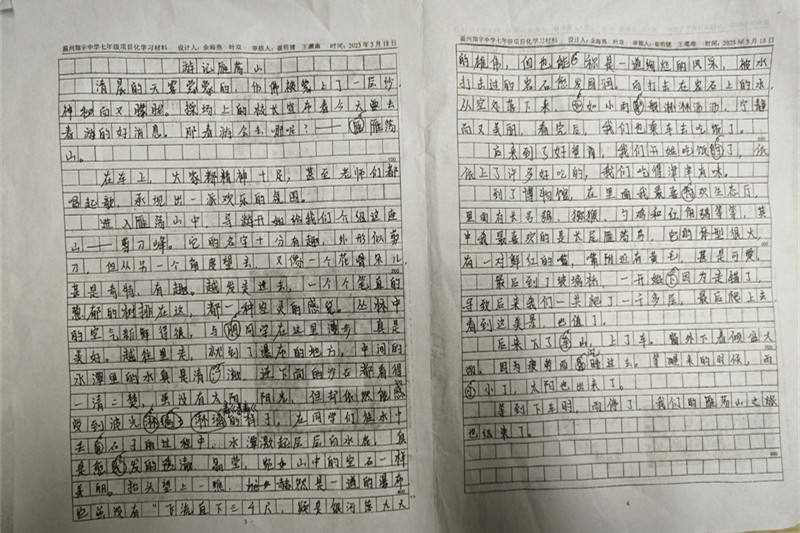 温州翔宇中学七年级项目化学习材料 设计人：余海燕 叶双 审核人：崔明健 王珊南 时间：2023年3月18日
游记雁荡山
清晨的天雾蒙蒙的，仿佛被套上了一层纱，
神秘而又朦胧。操场上的校长宣布着今天要去
春游的好消息。那春游会去哪呢？——雁荡
山。
在车上，大家都精神十足，甚至老师们都
唱起歌，呈现出一派欢乐的氛围。
进入雁荡山中，导游开始给我们介绍这座
山——剪刀峰。它的名字十分有趣，外形似剪
刀，但从另一个角度望去，又像一个花骨朵儿
甚是奇特，有趣。越发走进去，一个个笔直的
葱郁的树排在这，都一种安灵的感觉。丛林中
的空气新鲜得很，与同学在这里漫步，真是
美好。越往里走，就到了瀑布的地方，中间的
水潭里的水真是清澈，连下面的沙石都看得
一清二楚，虽没有太阳 阳光，但却依然能感
受到波光粼粼的样子，在同学们往水中
丢石子的过程中，水潭激起层层白水花，真
是越发的透澈 晶莹，宛如山中的宝石一样
美丽。抬头望上一瞧，赫然是一道的瀑布
他虽没有“飞流直下三千尺，疑是银河落九天
5
温州翔宇中学七年级项目化学习材料 设计人：余海燕 叶双 审核人：崔明健 王珊南 时间：2023年3月18日
的雄伟，但也能称是一道绚烂的风采，被水
打去过的岩石愈发圆润。而打击在岩石上的水，
从空处落下来，如小雨般淋淋洒洒，宁静
而又美丽，看完后，我们也乘车去吃饭了。
后来到了好望角，我们开始吃饭了，依
依上了许多好吃的，我们吃得津津有味。
到了博物馆，在里面我最喜欢生态厅，
里面有大马鹅，猕猴，勺鸡和红角鹗等等，其
中我最喜欢的是大尾雁荡鸟，它的体型很大，
有一对鲜红的嘴，嘴附近有黄毛，甚是可爱。
最后到了玻璃桥，一开始因为走错了，
导致后来我们一共爬了一个多层，最后爬上去
看到这美景，也值了。
后来下了山，上了车。窗外下着倾盆大
雨。因为疲劳而睡过去。等醒来的时候，雨
小了，太阳也出来了。
等到下车时，雨停了，我们的雁荡山之旅
也结束了。
6